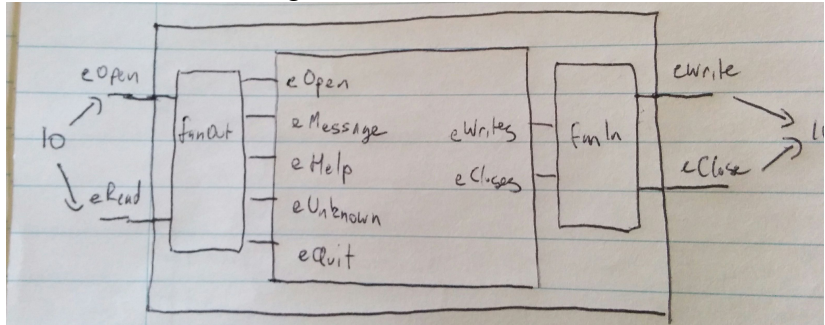 eOpen
IO
eRead
fanOut
eOpen
eMessage
eHelp
eUnknown
eQuit
eWrites
eCloses
fanIn
eWrite
eClose